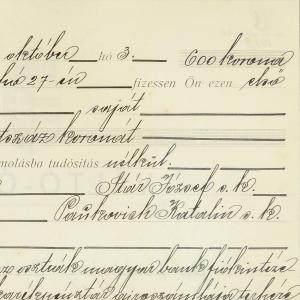 október hó 3. 600 korona
hó 27-én fizessen Ön ezen első
saját
tszáz koronát
molásba tudósitás nélkül.
Stár József s. k.
Paukovich Katalin s. k.
az osztrák magyar bank fiókintéze
karékpénztár